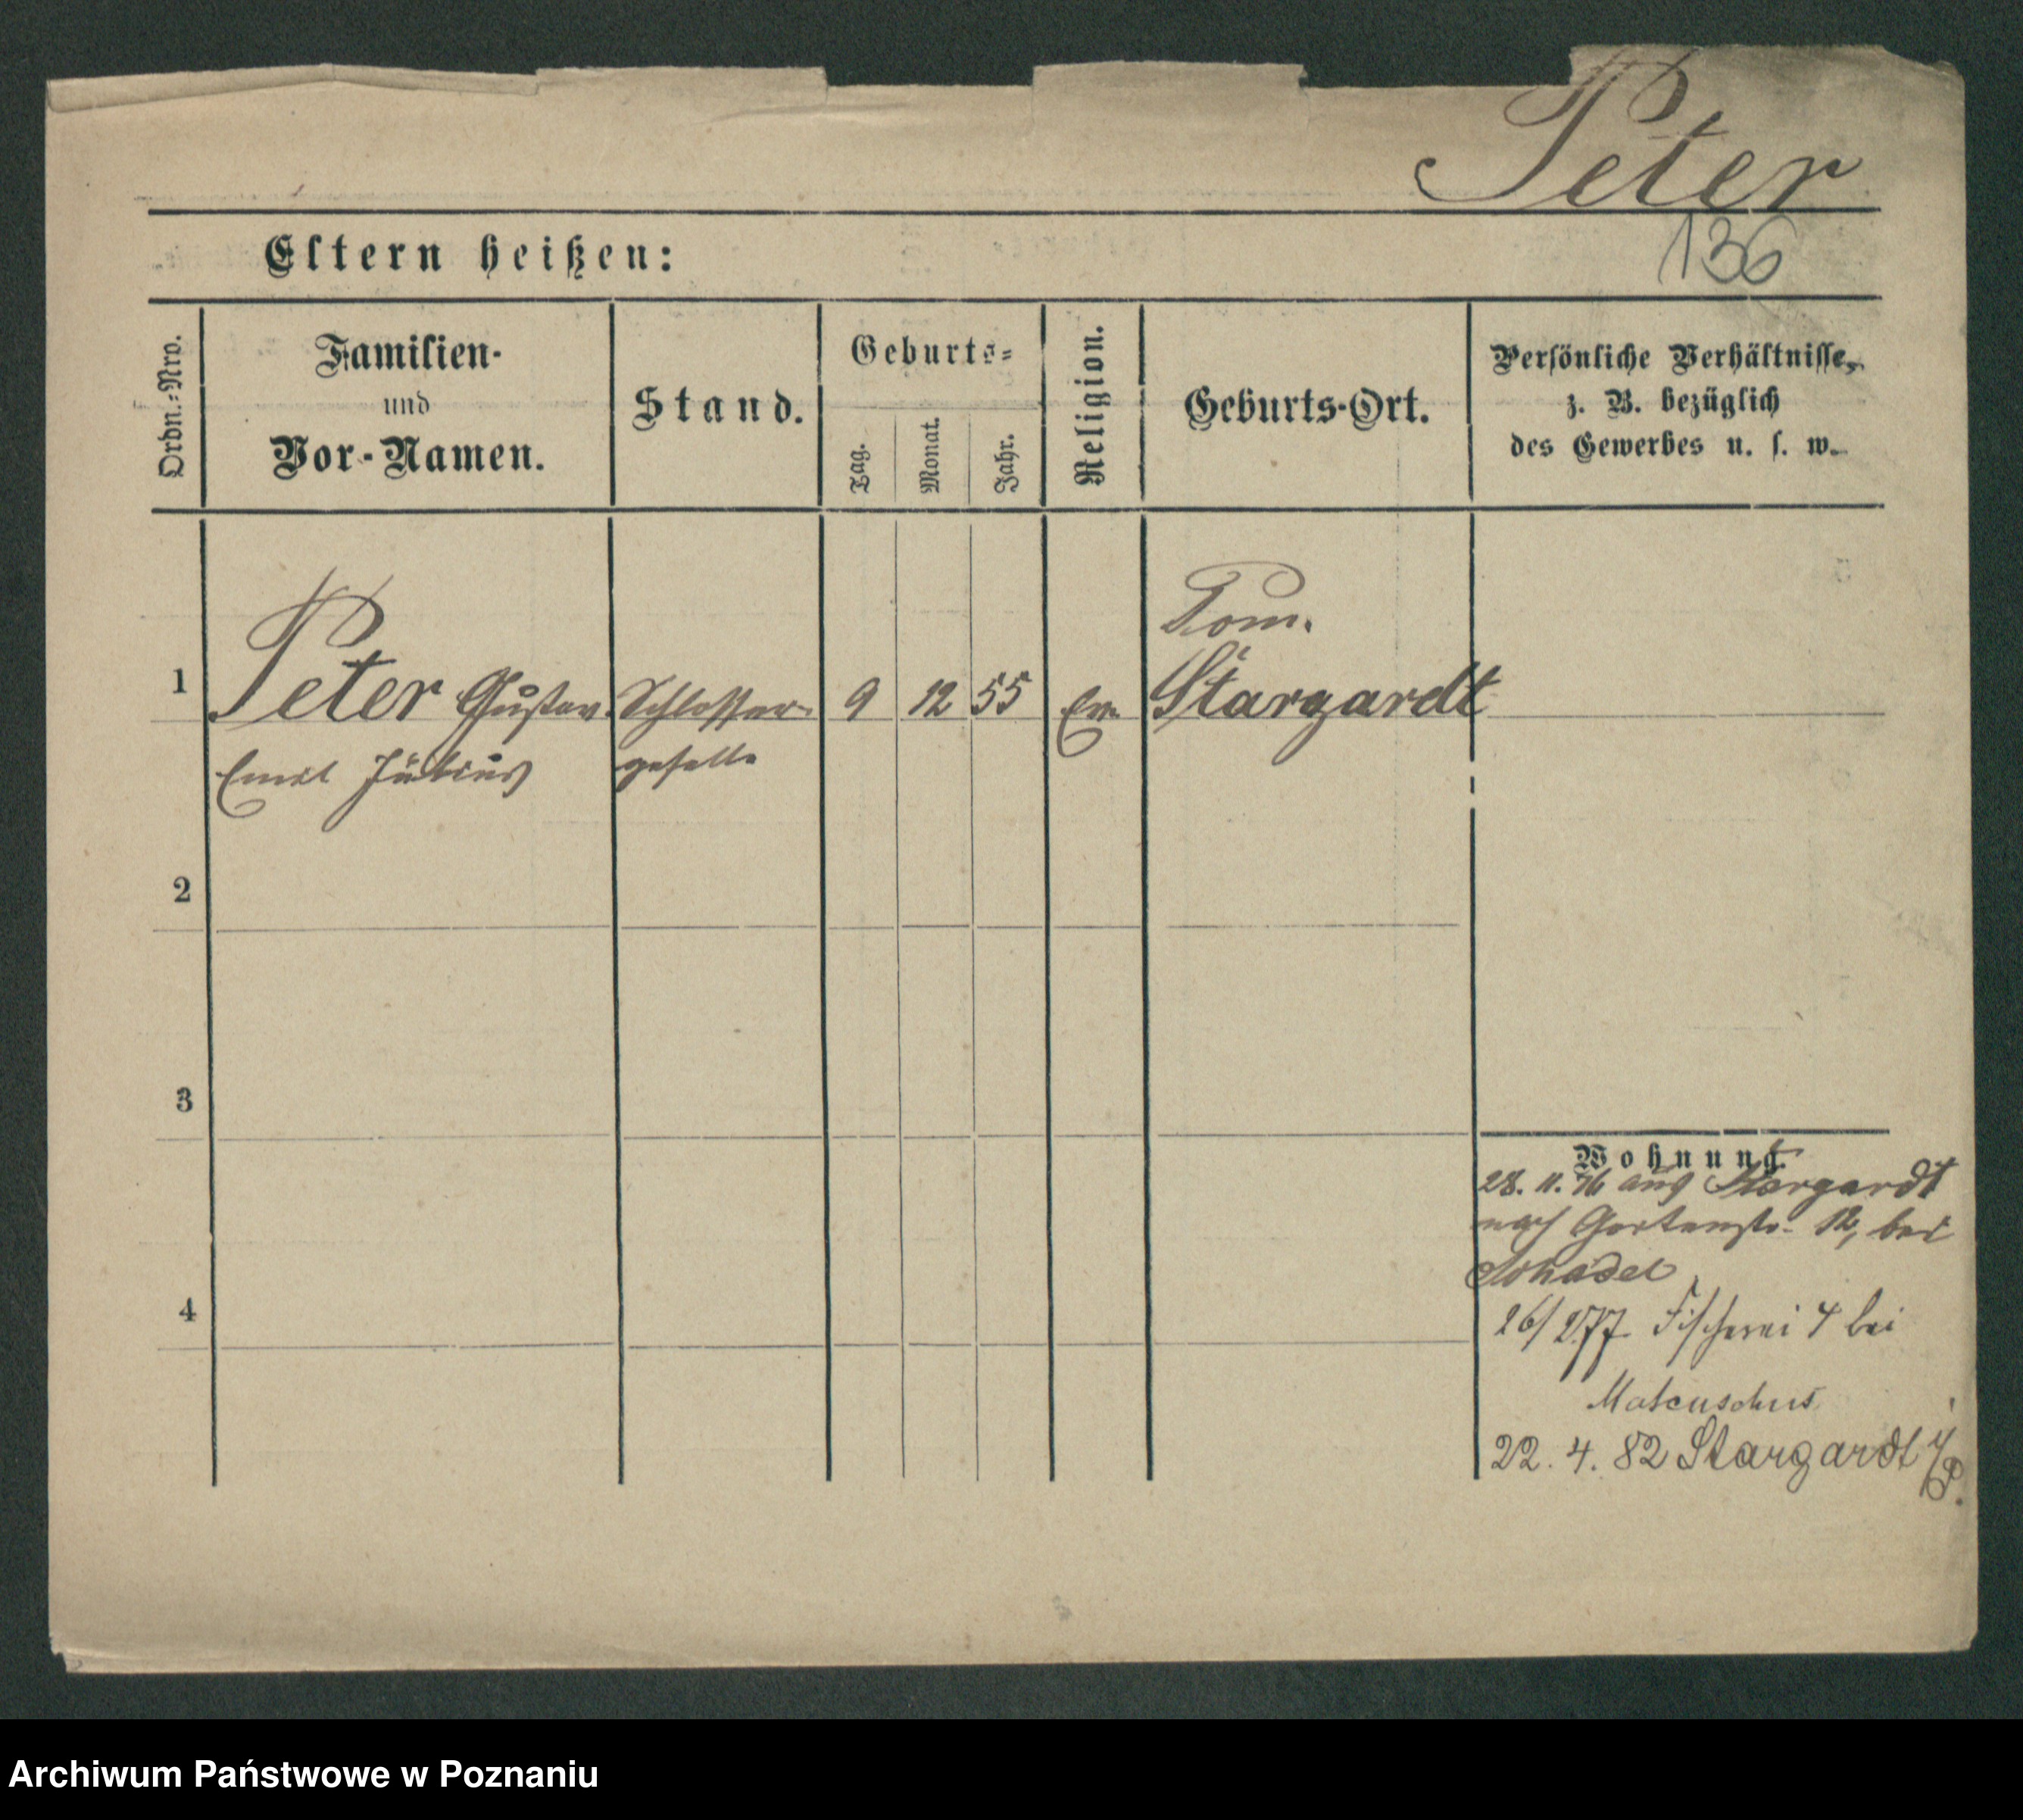 Peter
136
Eltern heißen:
Ordn.-Nro.
Familien-
und
Vor-Namen.
Stand.
Geburts-
Tag.
Monat.
Jahr.
Religion.
Geburts-Ort.
Persönliche Verhältnisse,
z. B. bezüglich
des Gewerbes u. s. w.
Pom.
1 Peter Gustav Schlosser- 9 12 55 Ev. Stargardt
Emil Julius geselle
2
3
4
Wohnung.
28. 11. 76 aus Stargardt
nach Gartenstr. 12, bei
26/2 77 Fischerei 4 bei
22. 4. 82 Stargardt i/P.
Archiwum Państwowe w Poznaniu